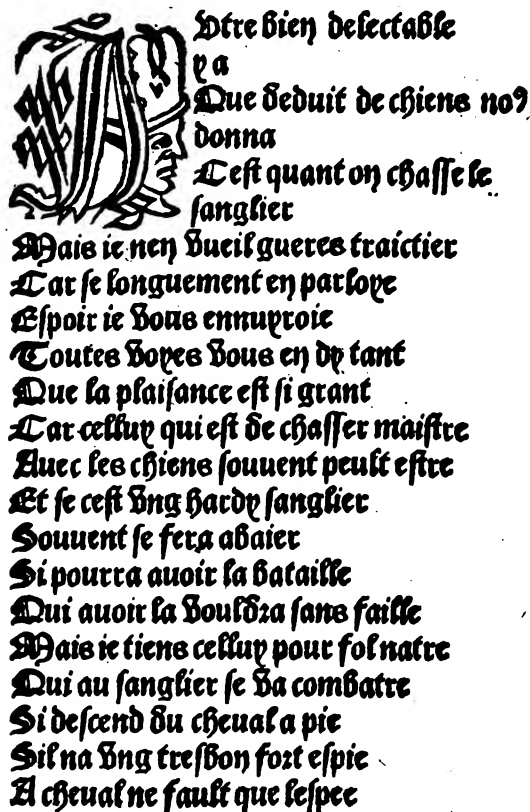 AVtre bien delectable
y a
Que deduit de chiens no9
donna
Cest quant on chasse le
sanglier
Mais ie nen vueil gueres traictier
Car se longuement en parloye
Espoir ie vous ennuyroie
Toutes voyes vous en dy tant
Que la plaisance est si grant
Car celluy qui est de chasser maistre
Auec les chiens souuent peult estre
Et se cest vng hardy sanglier
Souuent se fera abaier
Si pourra auoir la bataille
Qui auoir la vouldra sans faille
Mais ie tiens celluy pour fol natre
Qui au sanglier se va combatre
Si descend du cheual a pie
Sil na vng tresbon fort espie
A cheual ne fault que lespee